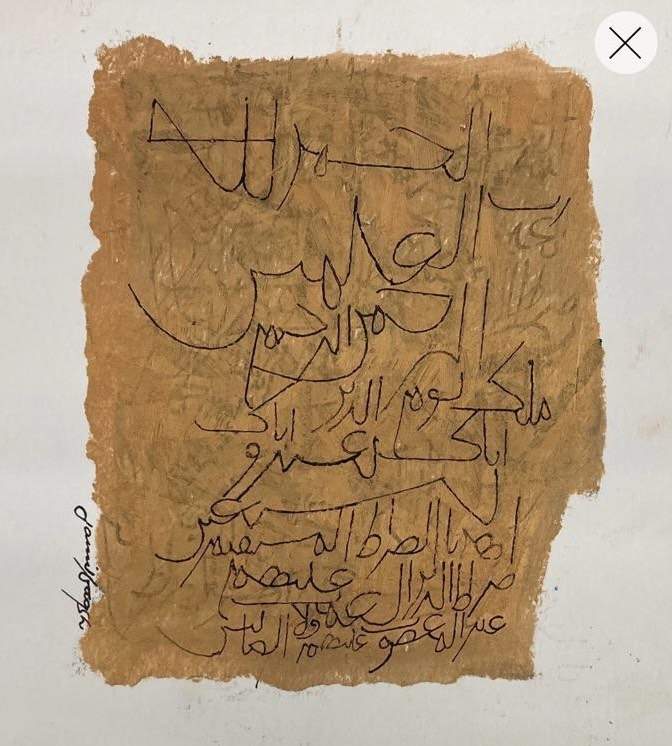 الحمد لله
رب العلمين
الرحمن الرحيم
ملك يوم الدين
اياك نعبد و اياك
نستعين
اهدنا الصرط المستقيم
صرط الذين انعمت عليهم
غير المغضوب عليهم ولا
الضالين